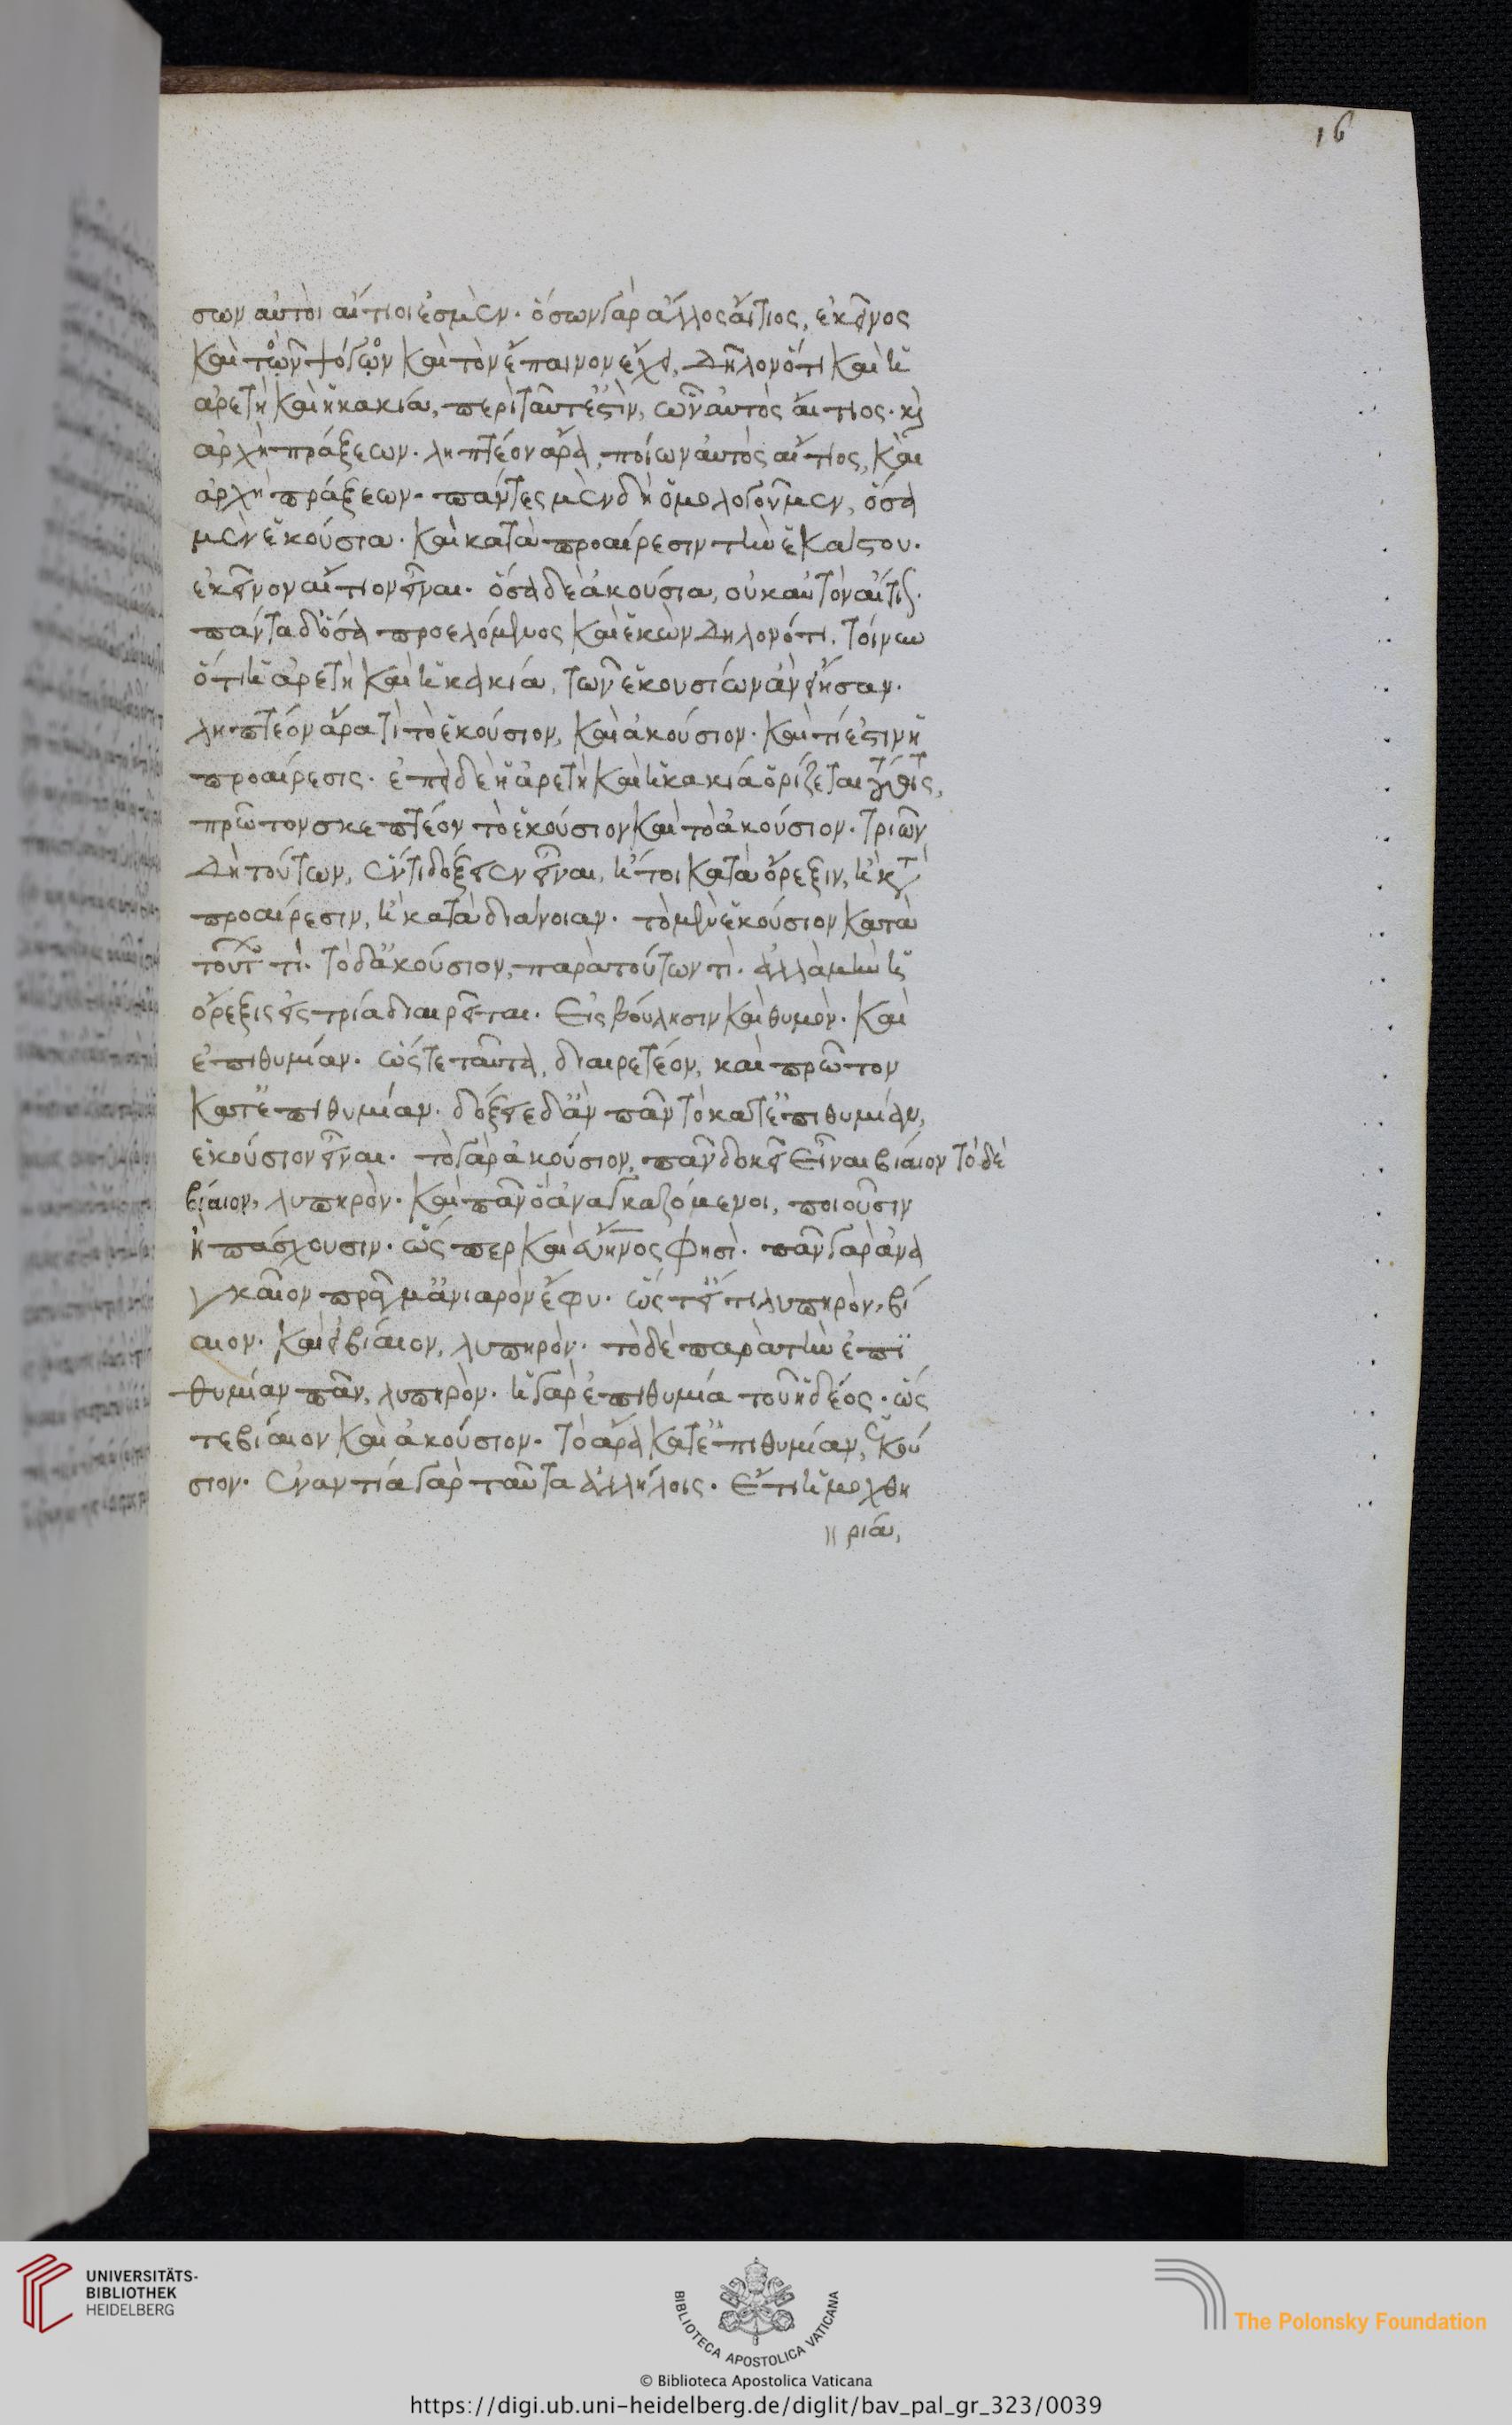 16
σων αὐτοὶ αἴτιοι ἐσμὲν. ὅσων γὰρ ἄλλος αἴτιος, ἐκεῖνος
καὶ τὸν ψόγον καὶ τὸν ἔπαινον ἔχει, δῆλον ὅτι καὶ ἡ
ἀρετὴ καὶ ἡ κακία, περὶ ταῦτ' ἐστὶν, ὧν αὐτὸς αἴτιος. κὶ
ἀρχὴ πράξεων. ληπτέον ἄρα, ποίων αὐτὸς αἴτιος, καὶ
ἀρχὴ πράξεων. πάντες μὲν δὴ ὁμολογοῦμεν, ὅσα
μὲν ἑκούσια. καὶ κατὰ προαίρεσιν τὴν ἑκάστου.
ἐκεῖνον αἴτιον εἶναι. ὅσα δὲ ἀκούσια, οὐκ αὐτὸν αἴτιον.
πάντα δ' ὅσα προελόμενος καὶ ἑκὼν δηλονότι. τοίνυν
ὅτι ἡ ἀρετὴ καὶ ἡ κακία, τῶν ἑκουσίων ἂν εἴησαν.
ληπτέον ἄρα τί τὸ ἑκούσιον, καὶ ἀκούσιον. καὶ τί ἐστιν ἡ
προαίρεσις. ἐπεὶ δὲ ἡ ἀρετὴ καὶ ἡ κακία ὁρίζεται τούτοις,
πρῶτον σκεπτέον τὸ ἑκούσιον καὶ τὸ ἀκούσιον. τριῶν
δὴ τούτων, ἕν τι δόξειεν εἶναι, ἤτοι κατὰ ὄρεξιν, ἢ κατὰ
προαίρεσιν, ἢ κατὰ διάνοιαν. τὸ μὲν ἑκούσιον κατὰ
τούτων τὶ. τὸ δ' ἀκούσιον, παρὰ τούτων τὶ. ἀλλὰ μὴν ἡ
ὄρεξις εἰς τρία διαιρεῖται. εἰς βούλησιν καὶ θυμὸν. καὶ
ἐπιθυμίαν. ὥστε ταῦτα, διαιρετέον, καὶ πρῶτον
κατ' ἐπιθυμίαν. δόξειε δ' ἂν πᾶν τὸ κατ' ἐπιθυμίαν,
ἑκούσιον εἶναι. τὸ γὰρ ἀκούσιον, πᾶν δοκεῖ εἶναι βίαιον τὸ δὲ
βίαιον, λυπηρὸν. καὶ πᾶν ὃ ἀναγκαζόμενοι, ποιοῦσιν
ἢ πάσχουσιν. ὥσπερ καὶ εὔηνος φησὶ. πᾶν γὰρ ἀνα
γκαῖον πρᾶγμ' ἀνιαρὸν ἔφυ. ὥστ' εἴ τι λυπηρὸν, βί
αιον. καὶ εἰ βίαιον, λυπηρὸν. τὸ δὲ παρὰ τὴν ἐπι
θυμίαν πᾶν, λυπηρὸν. ἡ γὰρ ἐπιθυμία τοῦ ἡδέος. ὥσ
τε βίαιον καὶ ἀκούσιον. τὸ ἄρα κατ' ἐπιθυμίαν, ἑκού
σιον. ἐναντία γὰρ ταῦτα ἀλλήλοις. ἔτι ἡ μοχθη
ρία,
UNIVERSITÄTS-
BIBLIOTHEK
HEIDELBERG
BIBLIOTECA APOSTOLICA VATICANA
The Polonsky Foundation
© Biblioteca Apostolica Vaticana
https://digi.ub.uni-heidelberg.de/diglit/bav_pal_gr_323/0039